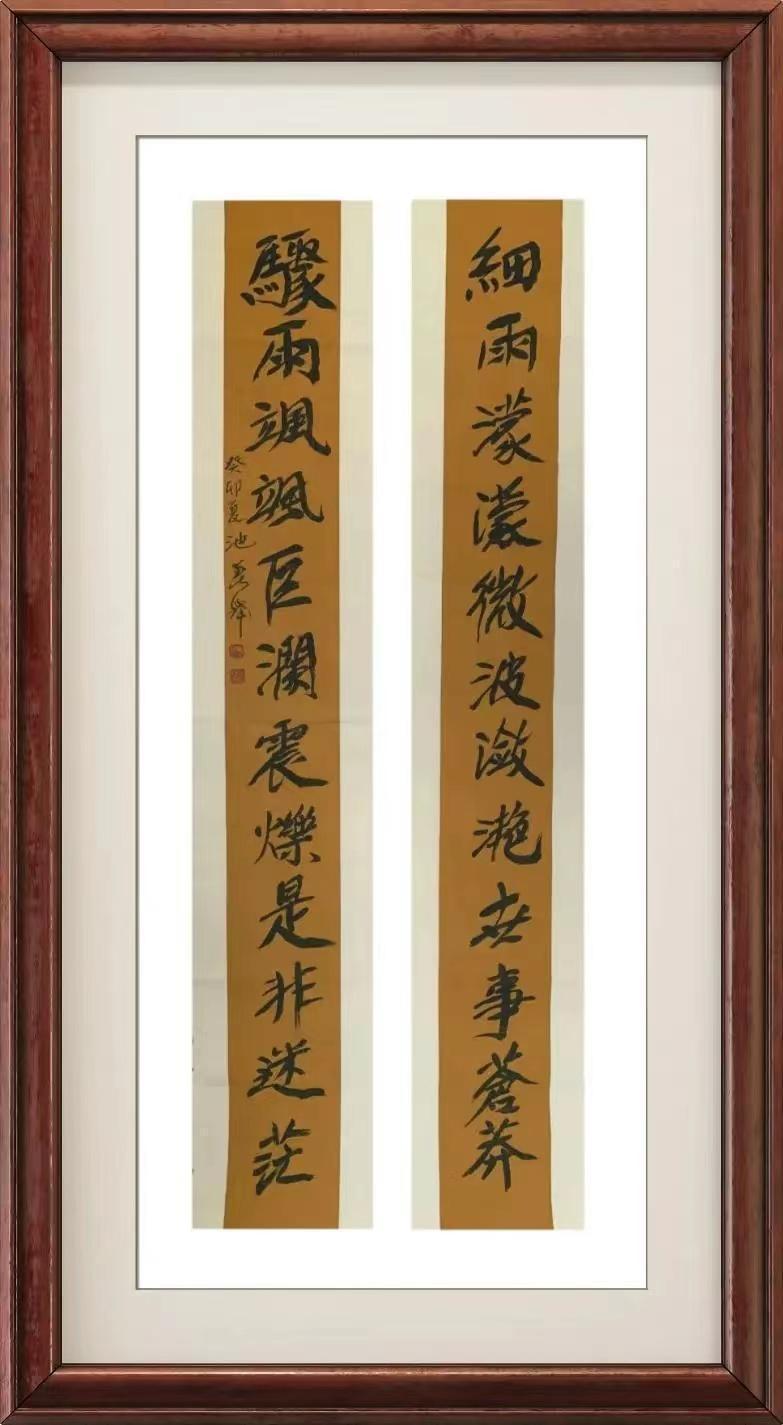 細雨濛濛微波瀲灧世事蒼莽
驟雨颯颯巨瀾震爍是非迷茫
癸卯夏池